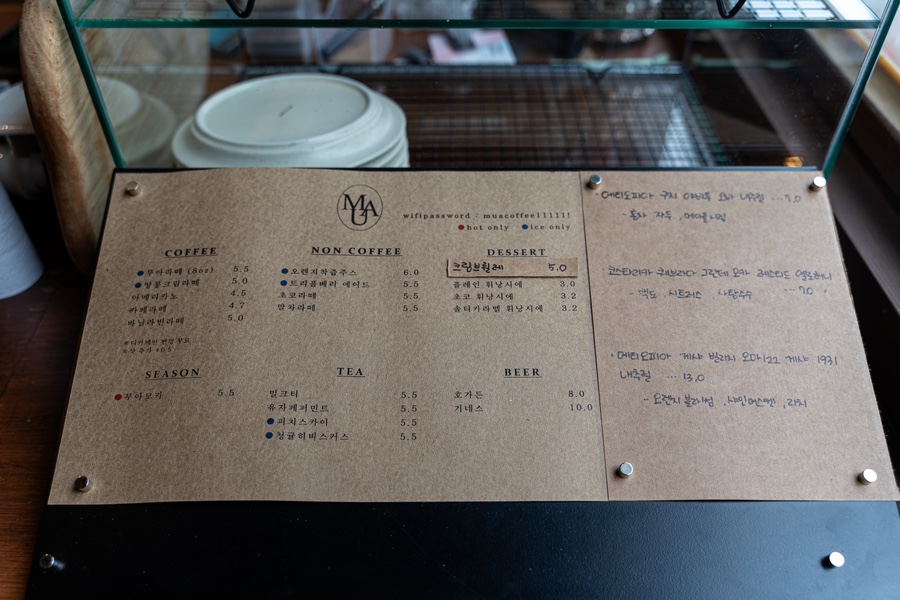 MUA
wifipassword : muacoffee11111!
hot only ice only
COFFEE
무아라떼 (8oz) 5.5
땅콩크림라떼 5.0
아메리카노 4.5
카페라떼 4.7
바닐라빈라떼 5.0
*디카페인 변경 무료
*샷 추가 +0.5
NON COFFEE
오렌지착즙주스 6.0
트리플베리 에이드 5.5
초코라떼 5.5
말차라떼 5.5
DESSERT
크림브륄레 5.0
플레인 휘낭시에 3.0
초코 휘낭시에 3.2
솔티카라멜 휘낭시에 3.2
SEASON
무아모카 5.5
TEA
밀크티 5.5
유자페퍼민트 5.5
피치스카이 5.5
청귤히비스커스 5.5
BEER
호가든 8.0
기네스 10.0
에티오피아 구지 내추럴 ... 7.0
- 홍차 자두 .메이플시럽
코스타리카
- 백도 . 시트러스 사탕수수 ... 7.0
· 에티오피아 게샤 빌리지 오마 122 게샤 1931
내추럴 ... 13.0
- 오렌지 블라썸 .샤인머스켓 .리치